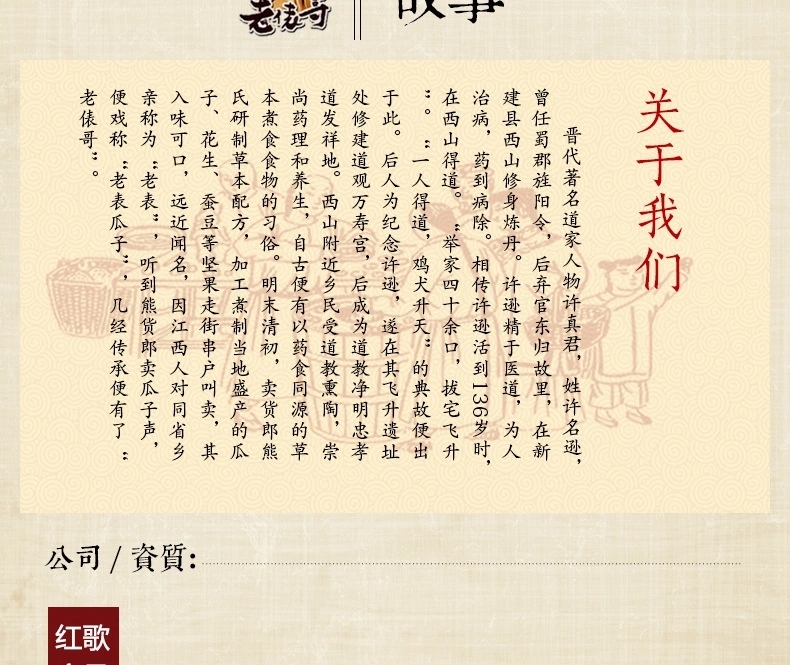 老俵哥
故事
关于我们
晋代著名道家人物许真君，姓许名逊，
曾任蜀郡旌阳令，后弃官东归故里，在新
建县西山修身炼丹。许逊精于医道，为人
治病，药到病除。相传许逊活到136岁时，
在西山得道。“举家四十余口，拔宅飞升
”。“一人得道，鸡犬升天”的典故便出
于此。后人为纪念许逊，遂在其飞升遗址
处修建道观万寿宫，后成为道教净明忠孝
道发祥地。西山附近乡民受道教熏陶，崇
尚药理和养生，自古便有以药食同源的草
本煮食食物的习俗。明末清初，卖货郎熊
氏研制草本配方，加工煮制当地盛产的瓜
子、花生、蚕豆等坚果走街串户叫卖，其
入味可口，远近闻名，因江西人对同省乡
亲称为“老表”，听到熊货郎卖瓜子声，
便戏称“老表瓜子”，几经传承便有了“
老俵哥”。
公司/資質:
红歌